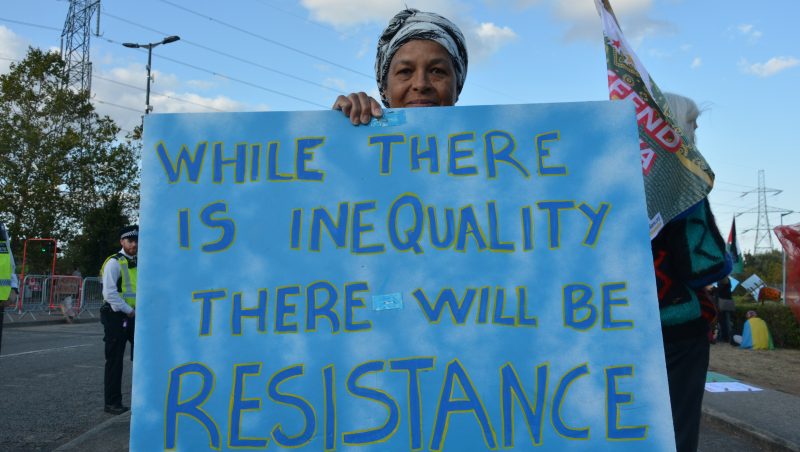 WHILE THERE
IS INEQUALITY
THERE WILL BE
RESISTANCE